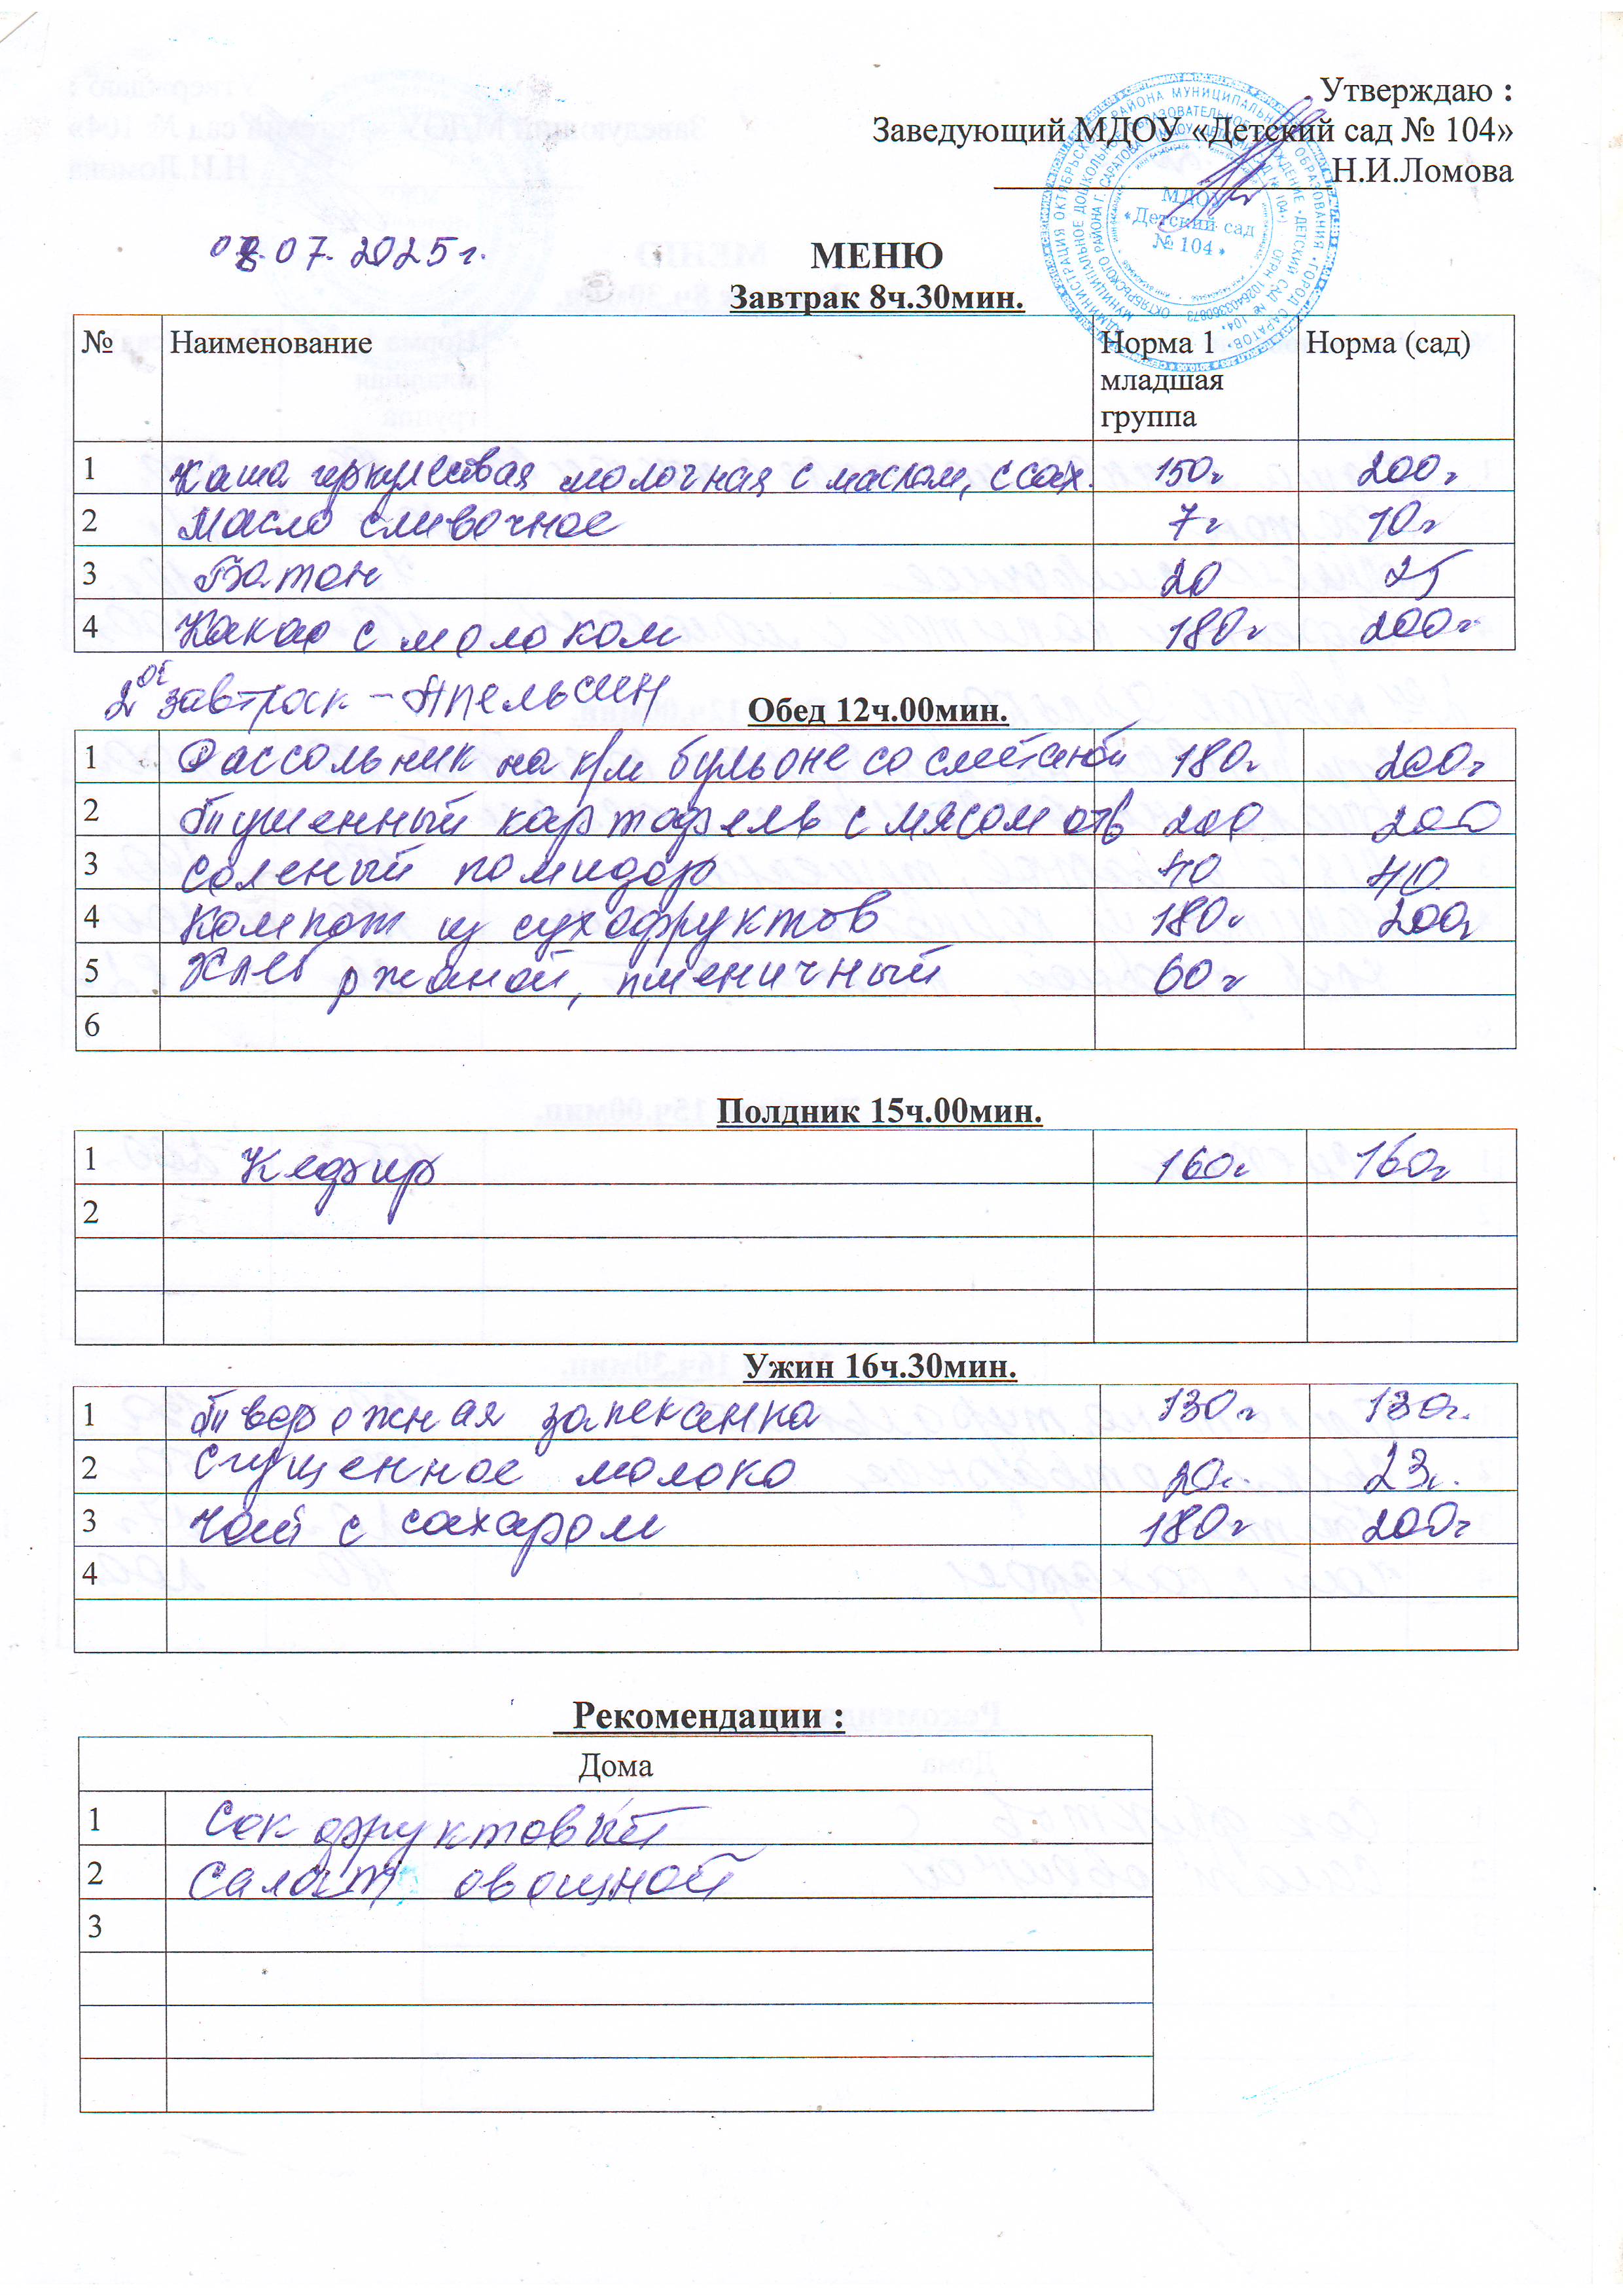 Утверждаю :
Заведующий МДОУ «Детский сад № 104»
Н.И.Ломова
МДОУ
«Детский сад
№ 104»
08.07.2025г.
МЕНЮ
Завтрак 8ч.30мин.
№ Наименование Норма 1 младшая группа Норма (сад)
1 Каша геркулесовая молочная с маслом, с сах. 150г 200г
2 Масло сливочное 7г 10г
3 Батон 20 25
4 Какао с молоком 180г 200г
2ой завтрак - Апельсин
Обед 12ч.00мин.
1 Рассольник на к/м бульоне со сметаной 180г 200г
2 Тушенный картофель с мясом отв 200 200
3 Соленый помидор 40 40
4 Компот из сухофруктов 180г 200г
5 Хлеб ржаной, пшеничный 60г
6
Полдник 15ч.00мин.
1 Кефир 160г 160г
2
Ужин 16ч.30мин.
1 Творожная запеканка 130г 130г.
2 Сгущенное молоко 20г. 23г.
3 Чай с сахаром 180г 200г
4
Рекомендации :
Дома
1 Сок фруктовый
2 Салат овощной
3